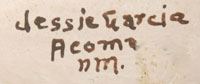 Jessie Garcia
Acoma
nm.